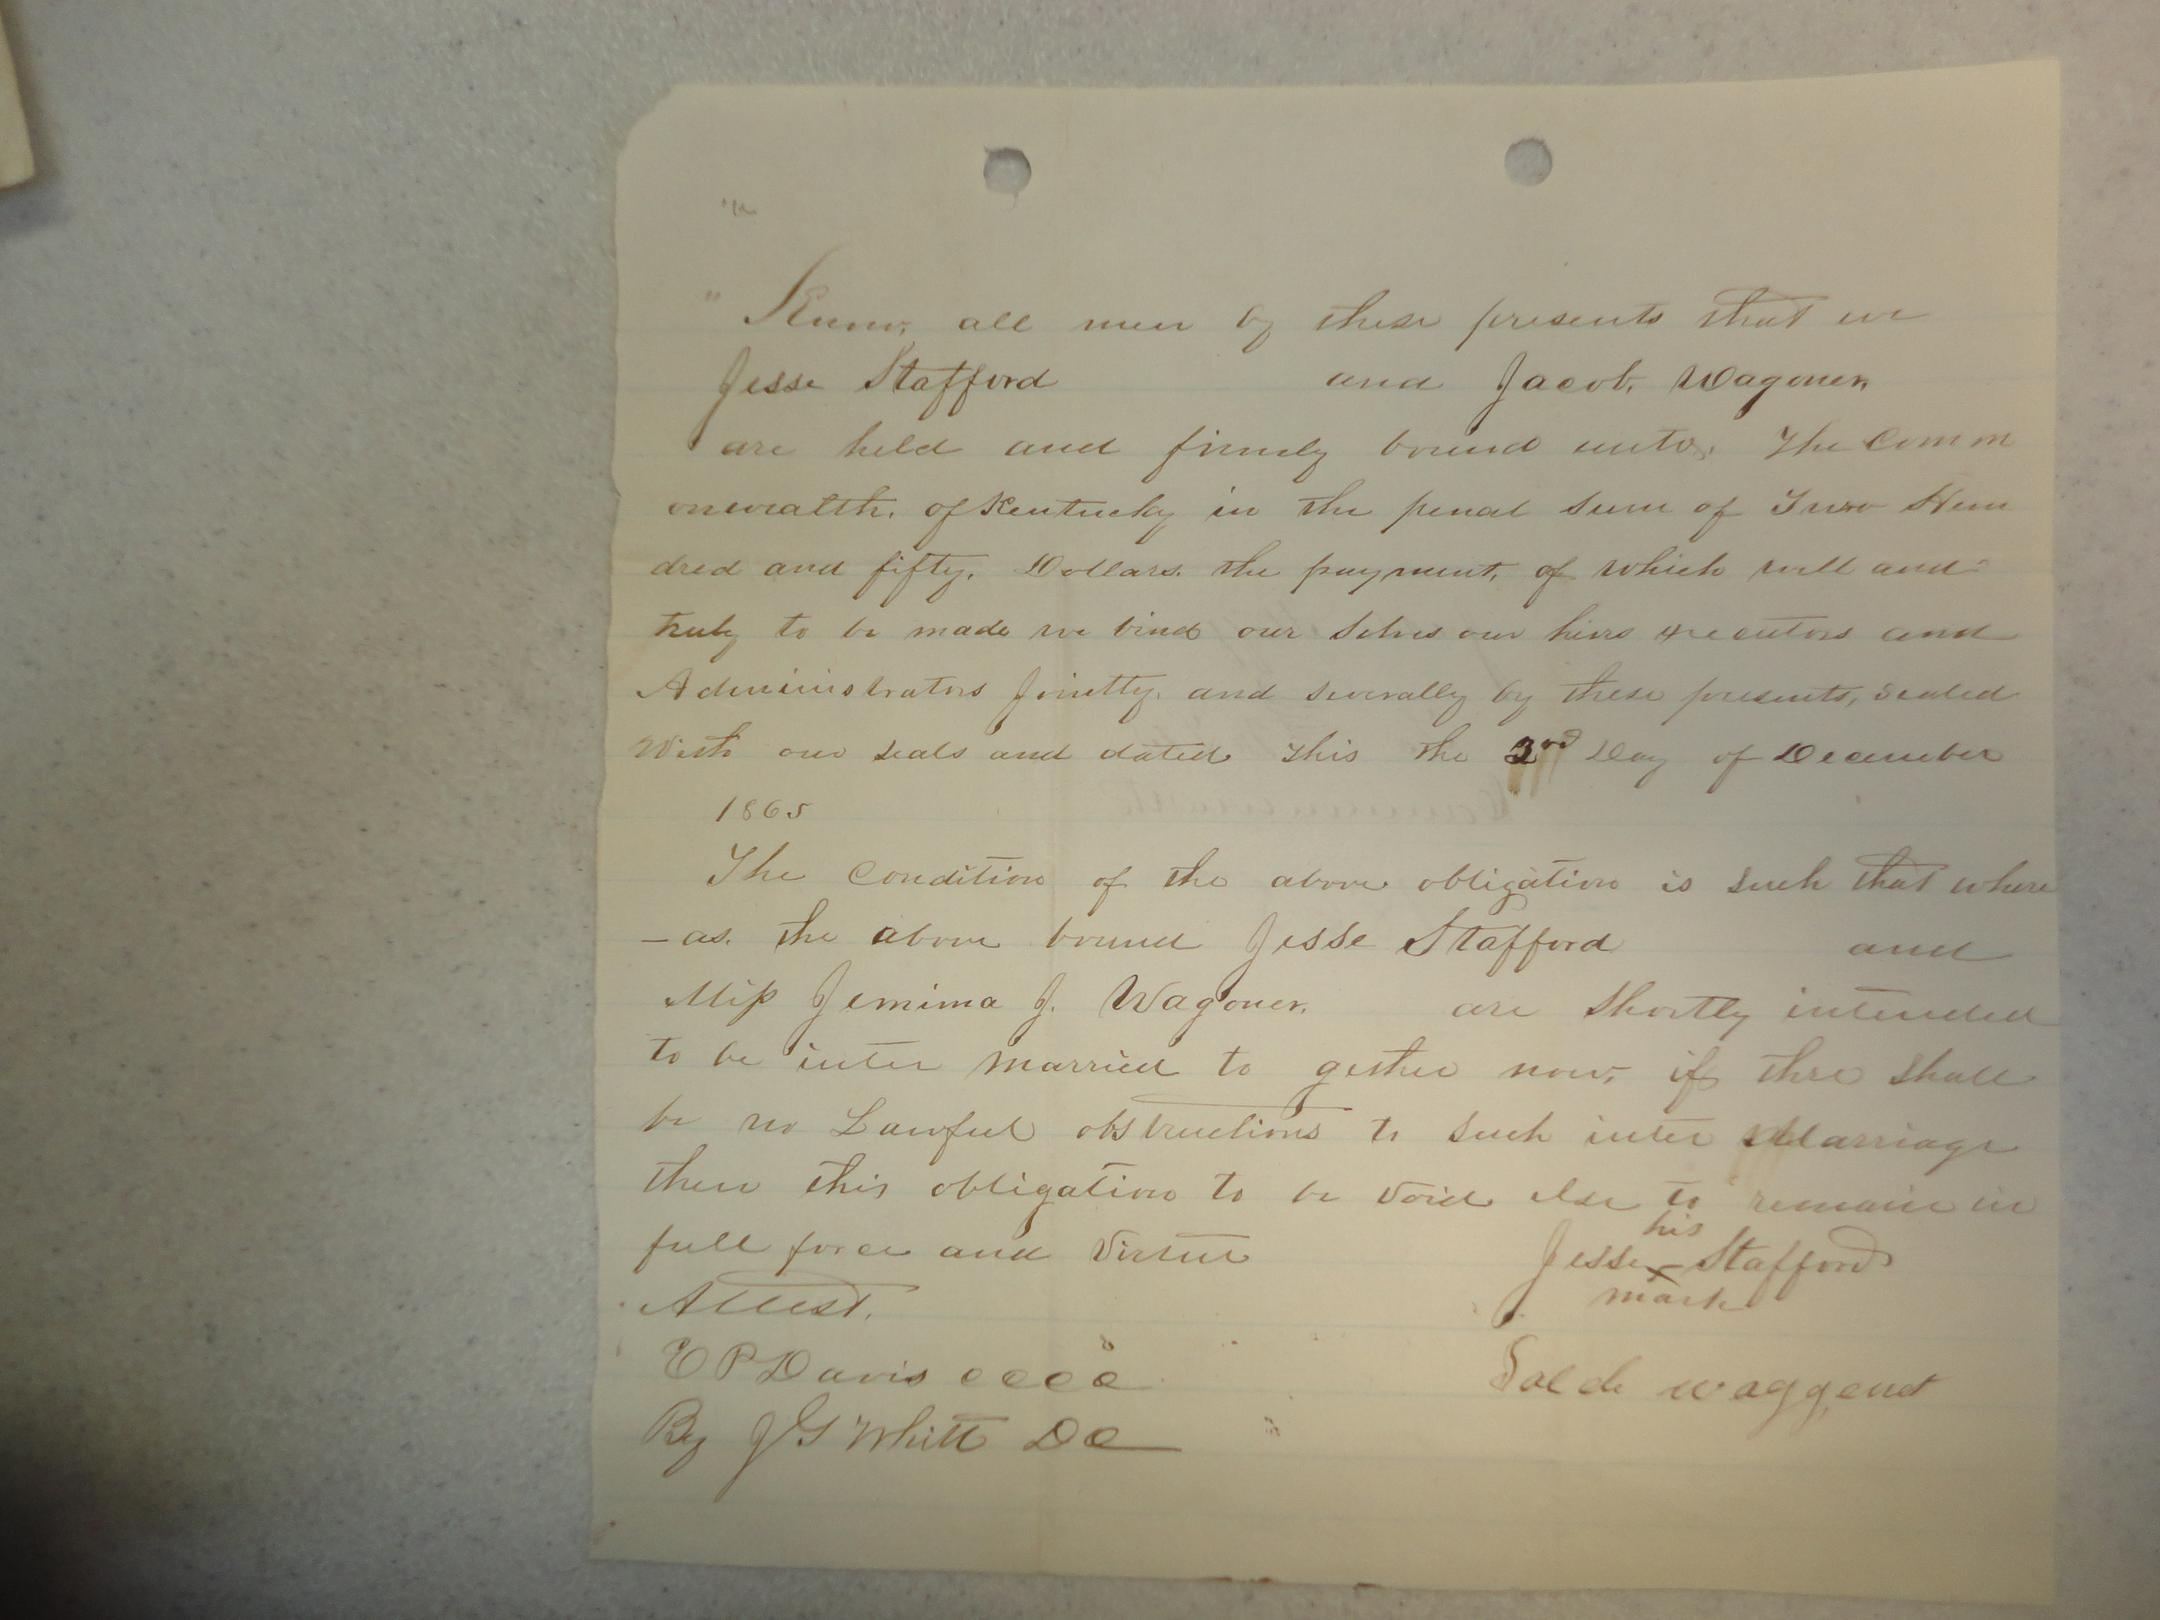 Know, all men by these presents that we
Jesse Stafford and Jacob, Wagoner,
are held and firmly bound unto, The Comm
onwealth, of Kentucky in the penal sum of Two Hun
dred and fifty, Dollars, the payment, of which well and
truly to be made we bind our selves our hiers executors and
Administrators Jointly, and severally by these presents, sealed
With our seals and dated this the Day of December
1865
The Condition of the above obligation is such that where
- as. the above bound Jesse Stafford and
Miss Jemima J. Wagoner, are Shortly intended
to be inter married to gether now, if thre shall
be no Lawful obstructions to such inter Marriage
then this obligation to be void else to remain in
full force and Virtue
his
Jesse x Stafford
mark
Attest.
E P Davis
By J G Whitt D C